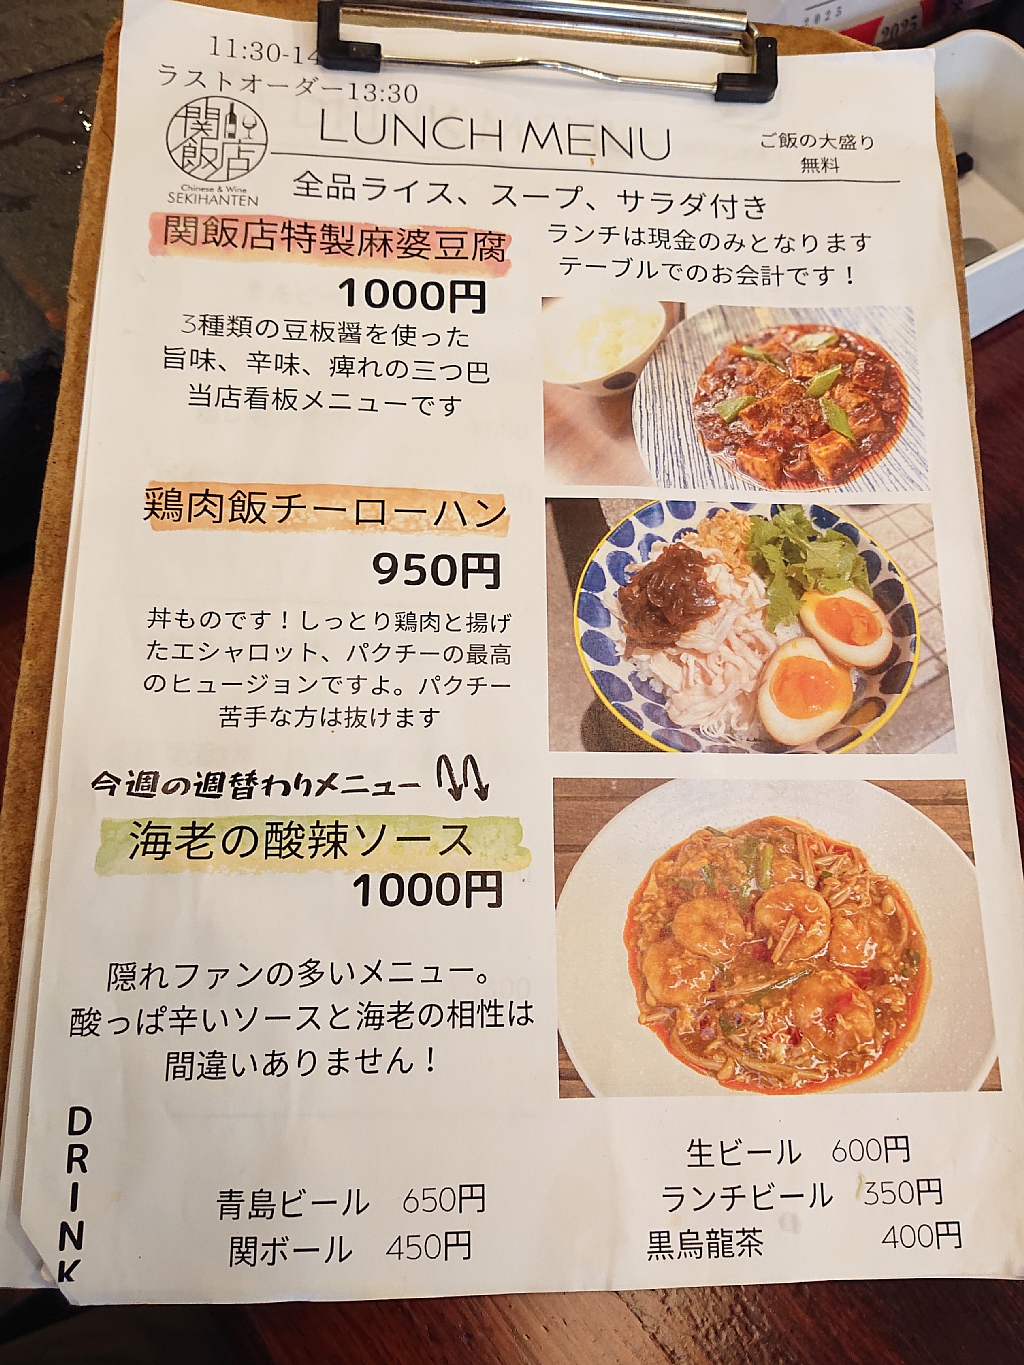 11:30-14
ラストオーダー13:30
関飯店
Chinese & Wine
SEKIHANTEN
LUNCH MENU
ご飯の大盛り
無料
全品ライス、スープ、サラダ付き
ランチは現金のみとなります
テーブルでのお会計です！
関飯店特製麻婆豆腐
1000円
3種類の豆板醤を使った
旨味、辛味、痺れの三つ巴
当店看板メニューです
鶏肉飯チーローハン
950円
丼ものです！しっとり鶏肉と揚げ
たエシャロット、パクチーの最高
のヒュージョンですよ。パクチー
苦手な方は抜けます
今週の週替わりメニュー
海老の酸辣ソース
1000円
隠れファンの多いメニュー。
酸っぱ辛いソースと海老の相性は
間違いありません！
DRINK
青島ビール 650円
関ボール 450円
生ビール 600円
ランチビール 350円
黒烏龍茶 400円
2025
2025